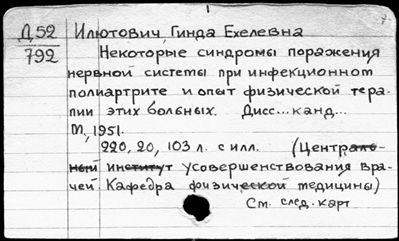 Д 52 Илютович, Гинда Ехелевна
792 Некоторые синдромы поражения
нервной системы при инфекционном
полиартрите и опыт физической тера-
пии этих больных. Дисс... канд...
М., 1951.
220, 20, 103 л. с илл. (Централь-
ный институт усовершенствования вра-
чей. Кафедра физической медицины)
См. след. карт